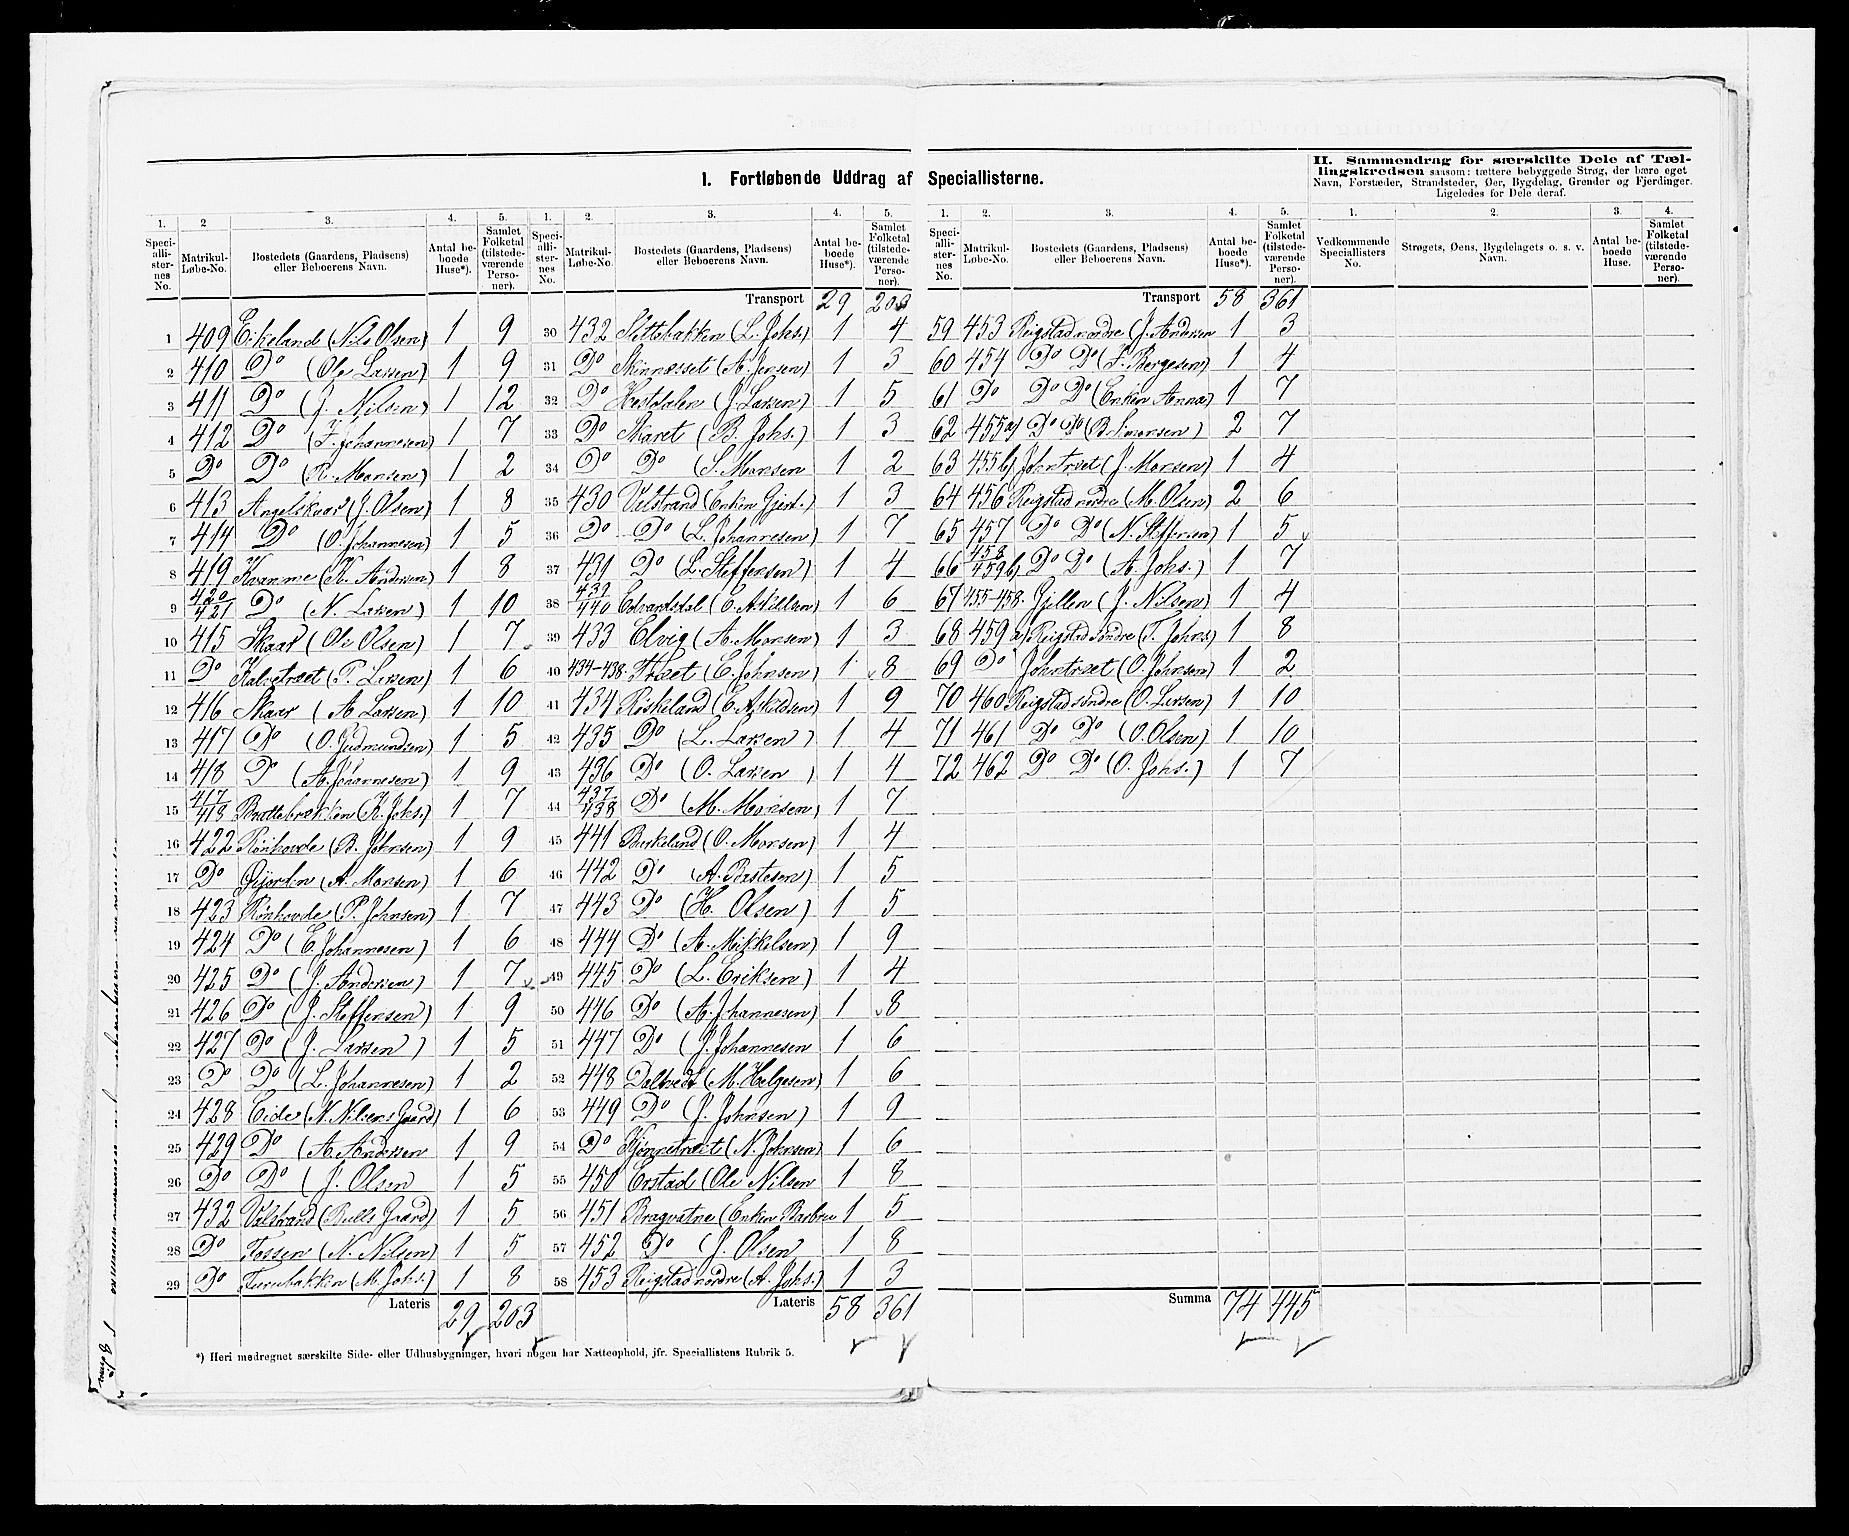 I. Fortløbende Uddrag af Speciallisterne.
II. Sammendrag for særskilte Dele af Tæl-
lingskredsen saasom: tættere bebyggede Strøg, der bære eget
Navn, Forstæder, Strandsteder, Øer, Bygdelag, Grender og Fjerdinger.
Ligeledes for Dele deraf.
1. 2 3. 4. 5.
Speciallisternes No. Matrikul-Løbe-No. Bostedets (Gaardens, Pladsens) eller Beboerens Navn. Antal beboede Huse*). Samlet Folketal (tilstedeværende Personer).
1 409 Eikeland (Nils Olsen) 1 9
2 410 Do (Ole Larsen) 1 9
3 411 Do (J. Nilsen) 1 12
4 412 Do (J. Johannesen) 1 7
5 Do Do (R. Monsen) 1 2
6 413 Angelskaar (J. Olsen) 1 8
7 414 Do (O. Johannesen) 1 5
8 419 Kvamme (K. Andersen) 1 8
9 420/421 Do (N. Larsen) 1 10
10 415 Skaar (Ole Olsen) 1 7
11 Do Kalvetræet (P. Larsen) 1 6
12 416 Skaar (A Larsen) 1 10
13 417 Do (O. Gudmundsen) 1 5
14 418 Do (A. Johannesen) 1 9
15 417/418 Brattebrækken (K. Johs.) 1 7
16 422 Rønhovde (B. Johnsen) 1 9
17 Do Gjerden (A. Monsen) 1 6
18 423 Rønhovde (P. Johnsen) 1 7
19 424 Do (E. Johannesen) 1 6
20 425 Do (J. Andersen) 1 7
21 426 Do (J. Steffensen) 1 9
22 427 Do (J. Larsen) 1 5
23 Do Do (L. Johannesen) 1 2
24 428 Eide (N. Nilsens Gaard) 1 6
25 429 Do (A. Andersen 1 9
26 Do Do (J. Olsen 1 5
27 432 Valstrand (Bulls Gaard) 1 5
28 Do Fossen (N. Nilsen) 1 5
29 Do Furubakkn (M. Johs.) 1 8
Lateris 29 203
1. 2. 3. 4. 5.
Speciallisternes No. Matrikul-Løbe-No. Bostedets (Gaardens, Pladsens) eller Beboerens Navn. Antal beboede Huse*). Samlet Folketal (tilstedeværende Personer).
Transport 29 203
30 432 Slettebakken (L. Johs.) 1 4
31 Do Skinnæsset (A. Jensen) 1 3
32 Do Hestdalen (J. Larsen) 1 5
33 Do Skaret (B. Johs.) 1 3
34 Do Do (S. Monsen 1 2
35 430 Velstrand (Enken Gjert.) 1 3
36 Do Do (L. Johannesen) 1 7
37 431 Do (L. Steffensen) 1 4
38 439/440 Edvardsdal (O. Askildsen) 1 6
39 433 Elvig (A. Monsen) 1 3
40 434-438. Træet (E. Johnsen) 1 8
41 434 Røskeland (E. Askildsen) 1 9
42 435 Do (L. Larsen) 1 4
43 436 Do (O. Larsen) 1 4
44 437/438 Do (M. Monsen) 1 7
45 441 Birkeland (O. Monsen) 1 4
46 442 Do (A. Bastesen) 1 5
47 443 Do (H. Olsen) 1 5
48 444 Do (A. Mikkelsen) 1 9
49 445 Do (L. Eriksen) 1 4
50 446 Do (A. Johannesen) 1 8
51 447 Do (J. Johannesen 1 6
52 448 Daltvedt (M. Helgesen) 1 6
53 449 Do (J. Johnsen) 1 9
54 Do Kjønnetræet (N. Johnsen) 1 6
55 450 Erstad (Ole Nilsen 1 8
56 451 Bragvatne (Enken Barbru 1 5
57 452 Do (J. Olsen 1 8
58 453 Reigstad nordre (A. Johs.) 1 3
Lateris 58 361
1. 2. 3. 4. 5.
Speciallisternes No. Matrikul-Løbe-No. Bostedets (Gaardens, Pladsens) eller Beboerens Navn. Antal beboede Huse*). Samlet Folketal (tilstedeværende Personer).
Transport 58 361
59 453 Reigstad nordre (J. Andersen 1 3
60 454 Do Do (J. Børgesen) 1 4
61 Do Do Do (Enken Anna) 1 7
62 455a) Do Do (B. Simonsen) 2 7
63 455b) Johntræet (J. Monsen) 1 4
64 456 Reigstad nordre (M. Olsen) 2 6
65 457 Do Do (N. Steffensen) 1 5
66 458/459b) Do Do (A. Johs.) 1 7
67 455-458. Gjillen (J. Nilsen) 1 4
68 459a) Reigstad søndre (T. Johns.) 1 8
69 Do Johntræet (O. Johnsen) 1 2
70 460 Reigstad søndre (O. Larsen) 1 10
71 461 Do Do (O. Olsen) 1 10
72 462 Do Do (O. Johs.) 1 7
Summa 74 445
1. 2. 3. 4.
Vedkommende Speciallisters No. Strøgets, Øens, Bygdelagets o. s. v. Navn. Antal beboede Huse. Samlet Folketal (tilstedeværende Personer).
*) Heri medregnet særskilte Side- eller Udhusbygninger, hvori nogen har Natteophold, jfr. Speciallistens Rubrik 5.